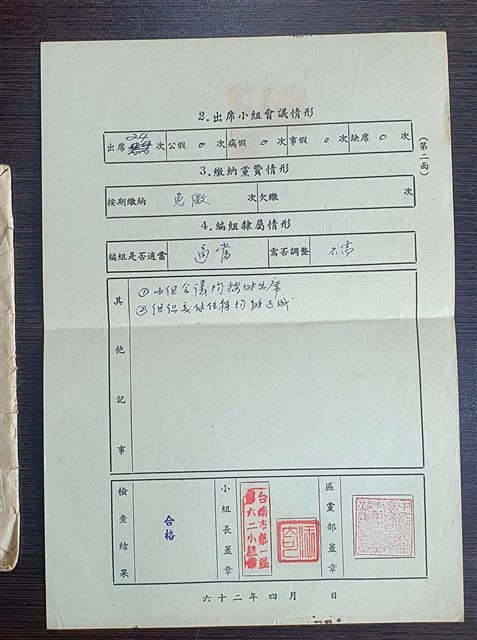 2.出席小組會議情形
出席 24 次 公假 0 次 病假 0 次 事假 0 次 缺席 0 次
(第二面)
3.繳納黨費情形
按期繳納 免繳 次 欠繳 次
4.編組隸屬情形
編組是否適當 適當 需否調整 不需
其他記事
①小組會議均按時出席
②組織交付任務均能達成
檢查結果
合格
小組長蓋章
台南市第一區
六二小組
區黨部蓋章
六十二年四月 日